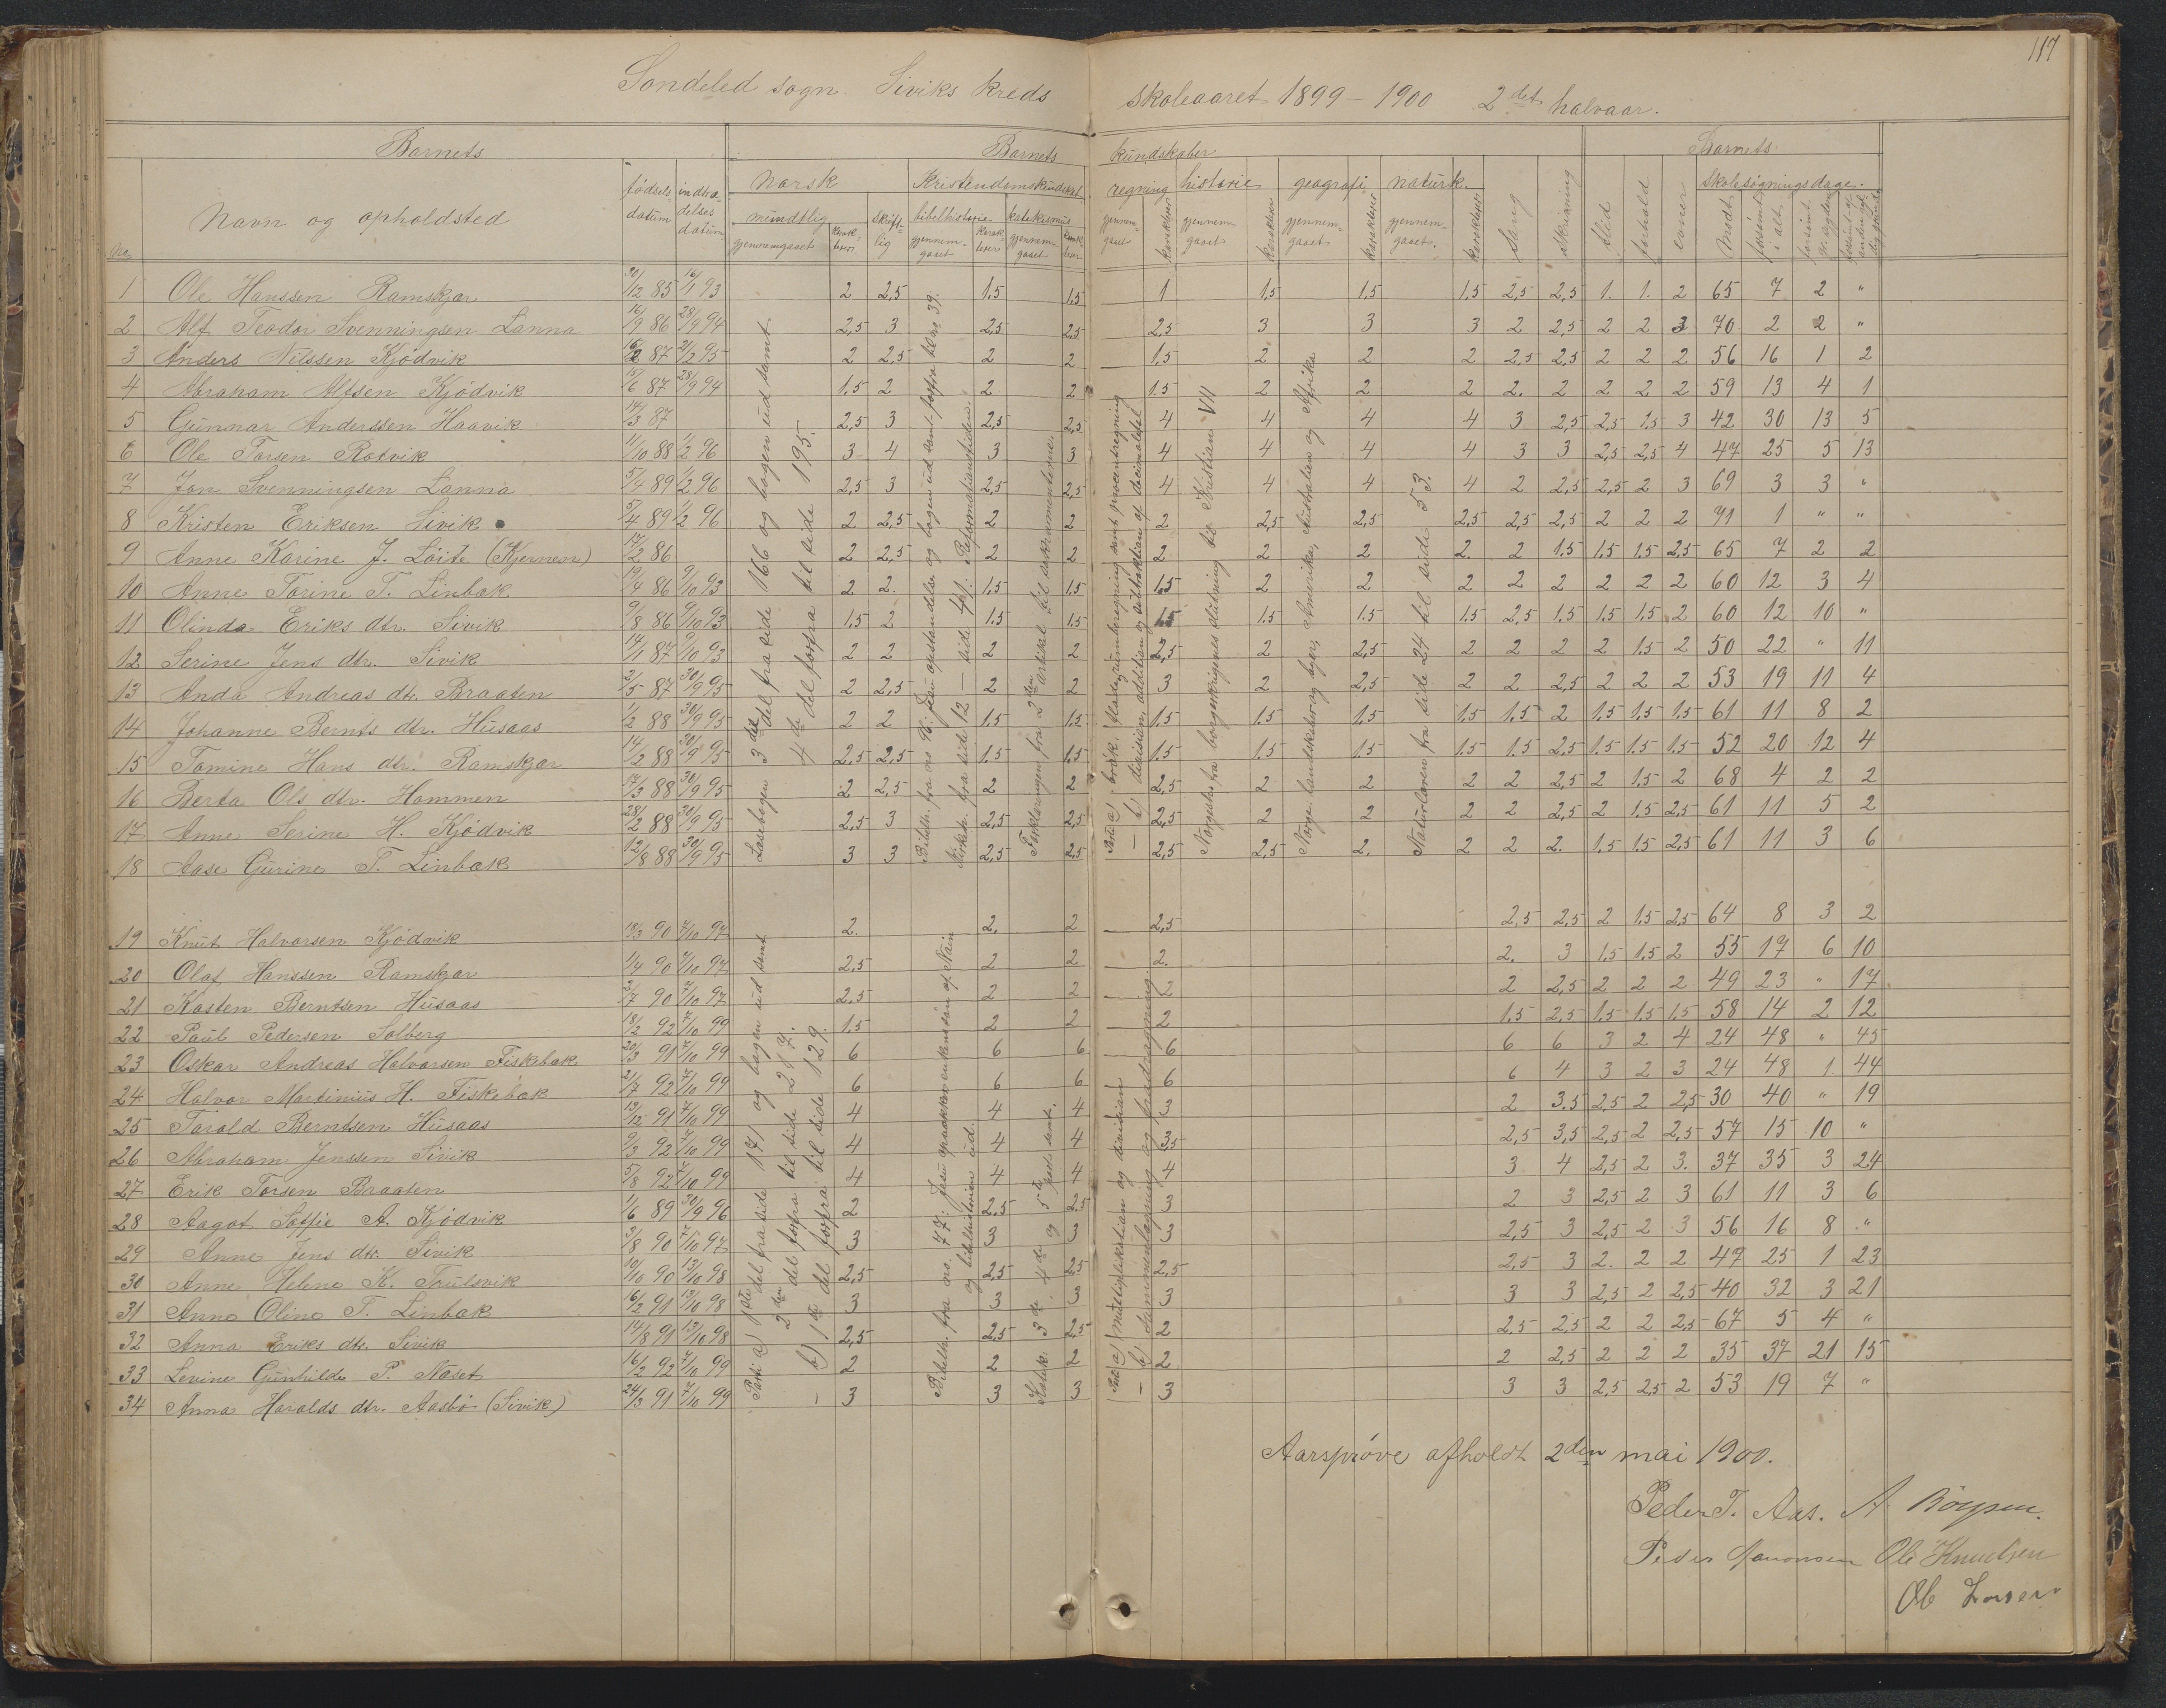 117
Søndeled sogn. Siviks kreds skoleaaret 1899 - 1900 2det halvaar.
Barnets Barnets kundskaber Barnets
No. Navn og opholdsted fødselsdatum indtrædelsesdatum norsk Kristendomskundskab regning historie geografi naturk. Sang skrivning flid forhold evner skolesøgningsdage.
mundtlig skriftlig bibelhistorie katekismus
gjennemgaaet karakterer gjennemgaaet karakterer gjennemgaaet karakterer gjennemgaaet karakterer gjennemgaaet karakterer gjennemgaaet karakterer gjennemgaaet karakterer mødt forsømt i alt
1 Ole Hanssen Ramskjær 30/12 85 16/1 93 2 2,5 1,5 1,5 1 1,5 1,5 1,5 2,5 2,5 1. 1. 2 65 7 2 "
2 Alf Teodor Svenningsen Lanna 16/9 86 28/9 94 2,5 3 2,5 2,5 2,5 3 3 3 2 2,5 2 2 3 70 2 2 "
3 Anders Nilssen Kjødvik 87 2/2 95 2 2,5 2 2 1,5 2 2 2 2,5 2,5 2 2 2 56 16 1 2
4 Abraham Alfsen Kjødvik 15/6 87 28/9 94 1.5 2 2 2 1.5 2 2 2 2. 2 2 2 2 59 13 4 1
5 Gunnar Anderssen Haavik 14/3 87 2,5 3 2,5 2,5 4 4 4 4 3 2,5 2,5 1,5 3 42 30 13 5
6 Ole Torsen Rødvik 11/10 88 1/2 96 3 4 3 3 4 4 4 4 3 3 2,5 2,5 4 47 25 5 13
7 Jon Svenningsen Lanna 5/4 89 1/2 96 2,5 3 2,5 2,5 4 4 4 4 2 2,5 2,5 2 3 69 3 3 "
8 Kristen Eriksen Sivik 5/4 89 1/2 96 2 2,5 2 2 2 2,5 2,5 2,5 2,5 2,5 2 2 2 71 1 " "
9 Anne Karine J. Løite (Kjernen) 17/2 86 2 2,5 2 2 2 2 2 2. 2 1.5 1.5 1.5 2,5 65 7 2 2
10 Anne Torine T. Linbæk 19/4 86 9/10 93 2 2. 1,5 1,5 1,5 2 2 2 2 2 2 2 2 60 12 3 4
11 Olinda Eriks dtr. Sivik 9/8 86 9/10 93 1,5 2 1,5 1,5 1,5 1.5 1.5 1.5 2,5 1.5 1.5 1,5 2 60 12 10 "
12 Serine Jens dtr. Sivik 14/1 87 9/10 93 2 2 2 2 2,5 2 2,5 2 2 2 2 1.5 2 50 22 " 11
13 Anda Andreas dtr. Braaten 2/5 87 30/9 95 2 2,5 2 2 3 2 2,5 2 2 2,5 2 2 2 53 19 11 4
14 Johanne Bernts dtr. Husaas 1/2 88 30/9 95 2 2 1.5 1.5 1.5 1.5 1.5 1.5 1.5 2 1.5 1.5 1.5 61 11 8 2
15 Tomine Hans dtr. Ramskjær 14/2 88 30/9 95 2,5 2,5 1.5 1.5 1.5 1.5 1.5 1.5 1.5 2,5 1.5 1.5 1.5 52 20 12 4
16 Berta Ols dtr. Hammen 17/3 88 30/9 95 2 2,5 2 2 2,5 2 2 2 2 2,5 2 1.5 2 68 4 2 2
17 Anne Serine H. Kjødvik 28/2 88 30/9 95 2,5 3 2,5 2,5 2,5 2 2 2 2 2,5 2 1.5 2,5 61 11 5 2
18 Aase Gurine T. Linbæk 12/8 88 30/9 95 3 3 2,5 2,5 2,5 2,5 2. 2 2 2. 1.5 1.5 2,5 61 11 3 6
Læsebogen 3die del fra side 166 og bogen ud samt
4de del forfra til side 195.
Bibelh. fra no 96: Jesu opstandelse og bogen ud samt forfra til no 39.
Kirkeh. fra side 12 — side 41: Reformationstiden.
Forklaringen fra 2den artikel til sakramenterne.
Parti a) brøk, flade, rumberegning samt procentregning
— b) division, addition og subtraktion af decimaltal
Norgesh. fra borgerkrigenes slutning til Kristian VII
Norge: landskaber og byer, Amerika, Australien og Afrika
Naturlæren fra side 24 til side 53.
19 Knut Halvorsen Kjødvik 18/3 90 7/10 97 2. 2. 2 2,5 2,5 2,5 2 1.5 2,5 64 8 3 2
20 Olaf Hanssen Ramskjær 1/4 90 7/10 97 2,5 2 2 2. 2. 3 1.5 1.5 2 55 17 6 10
21 Kasten Berntsen Husaas 2/7 90 7/10 97 2,5 2 2 2 2 2,5 2 2 2 49 23 " 17
22 Paul Pedersen Solberg 18/2 92 7/10 99 1.5 2 2 2 1.5 2,5 1.5 1.5 1.5 58 14 2 12
23 Oskar Andreas Halvorsen Fiskebæk 20/3 91 7/10 99 6 6 6 6 6 6 3 2 4 24 48 " 45
24 Halvor Martinius H. Fiskebæk 21/7 92 7/10 99 6 6 6 6 6 4 3 2 3 24 48 1 44
25 Torald Berntsen Husaas 13/12 91 7/10 99 4 4 4 3 2 3.5 2,5 2 2,5 30 40 " 19
26 Abraham Jenssen Sivik 9/3 92 7/10 99 4 4 4 3,5 2,5 3,5 2,5 2 2,5 57 15 10 "
27 Erik Torsen Braaten 5/8 92 7/10 99 4 4 4 4 3 4 2,5 2 3. 37 35 3 24
28 Aagot Soffie A. Kjødvik 1/6 89 30/9 96 2 2,5 2,5 3 2 3 2,5 2 3 61 11 3 6
29 Anne Jens dtr. Sivik 3/8 90 7/10 97 3 3 3 3 2,5 3 2,5 2 3 56 16 8 "
30 Anne Helene K. Trulsvik 10/10 90 13/10 98 2,5 2,5 2,5 2,5 2,5 3 2. 2 2 47 25 1 23
31 Anne Oline T. Linbæk 16/2 91 13/10 98 3 3 3 3 3 3 2,5 2 2,5 40 32 3 21
32 Anna Eriks dtr. Sivik 14/8 91 13/10 98 2,5 2,5 2,5 2 2,5 2,5 2 2 2,5 67 5 4 "
33 Levine Gunhilde P. Næset 16/2 92 7/10 99 2 2 2 2 2 2,5 2 2 2 35 37 21 15
34 Anna Haralds dtr. Aasbø (Sivik) 24/3 91 7/10 99 3 3 3 3 3 3 2,5 2,5 2 53 19 7 "
Parti a) 1ste del fra side 171 og bogen ud samt
2den del forfra til side 217.
— b) 1ste del forfra til side 129.
Bibelh. fra no. 77: Jesu opvækker enkens søn af Nain
og bibelhistorien ud.
Katek: 3die, 4de og 5te part samt.
Parti a) multiplikation og division
— b) sammenlægning og fradragning
Aarsprøve afholdt 2den mai 1900.
Peder T. Aas. A Bøysen.
Peder Ole Knudsen